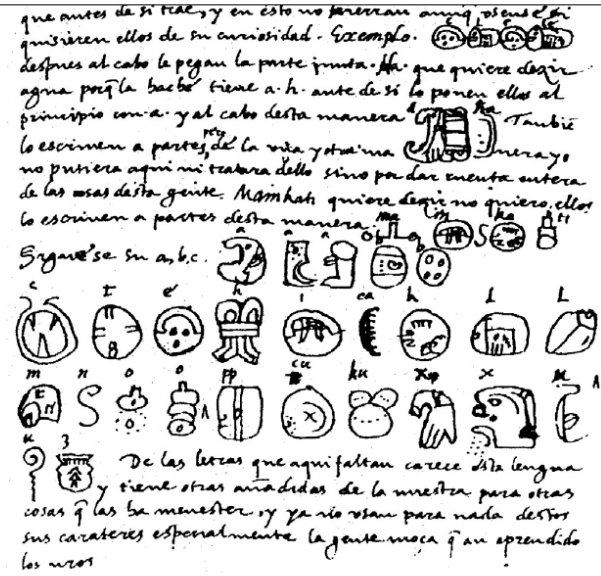 que antes de si trae, y en esto no
quisieren ellos de su curiosidad. Exemplo. e l e le
despues al cabo le pegan la parte junta. Ha. que quiere dezir
agua porq̃ la haché tiene a. h. ante de si lo ponen ellos al
principio con a. y al cabo desta manera a ha Tambiẽ
lo escriven a partes de la una y otra ma nera yo
no pusiera aqui ni tratara dello sino por dar cuenta entera
de las cosas desta gente. Mainkati quiere dezir no quiero, ellos
lo escriven a partes desta manera. ma i n ka ti
Siguese su a, b, c. a a a b b
c t é h i ca k l l
m n o o pp cu ku x x u
u z De las letras que aqui faltan carece esta lengua
y tiene otras añadidas de la nuestra para otras
cosas q̃ las ha menester, y ya no usan para nada destos
sus carateres especialmente la gente moça q̃ an aprendido
los nros